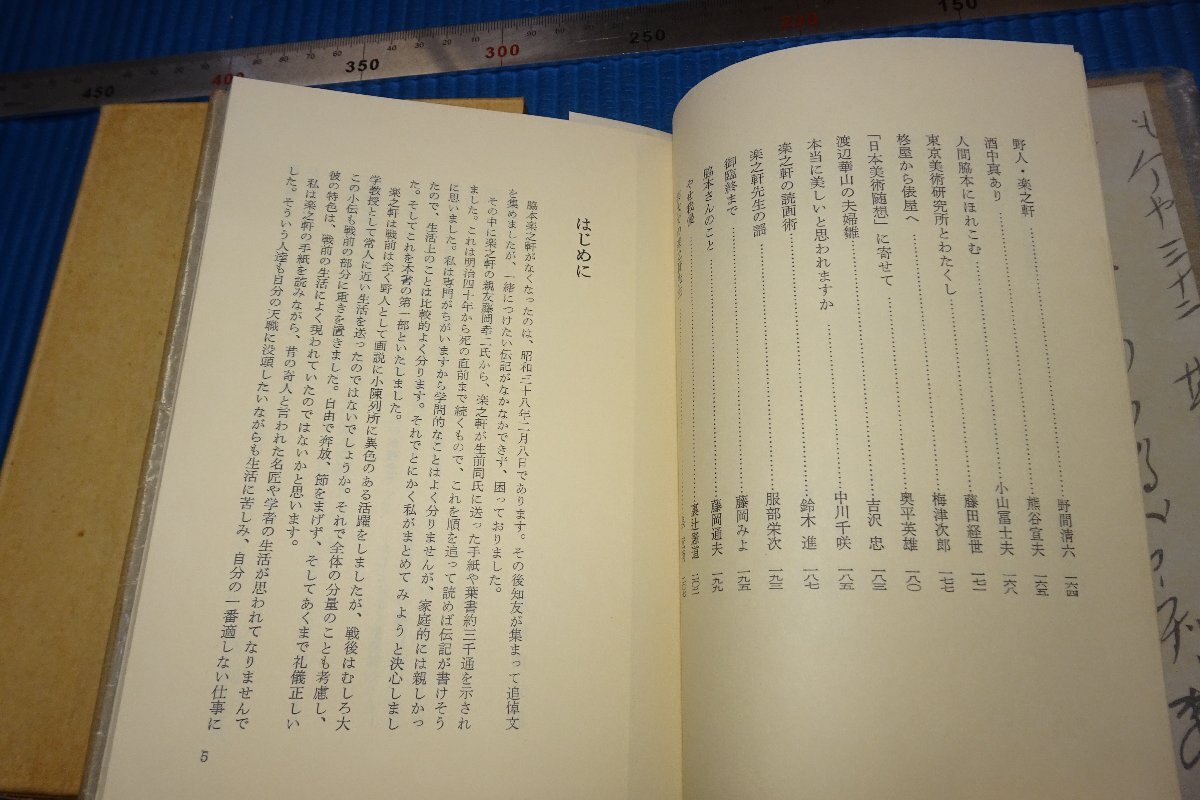 野人・楽之軒……野間清六 一六四
酒中真あり……熊谷宣夫 一六五
人間脇本にほれこむ……小山冨士夫 一六八
東京美術研究所とわたくし……藤田経世 一七一
柊屋から俵屋へ……梅津次郎 一七七
「日本美術随想」に寄せて……奥平英雄 一八〇
渡辺華山の夫婦雛……吉沢 忠 一八三
本当に美しいと思われますか……中川千咲 一八五
楽之軒の読画術……鈴木 進 一八七
楽之軒先生の謡……服部栄次 一九三
御臨終まで……藤岡みよ 一九五
脇本さんのこと……藤岡通夫 一九九
二〇一
はじめに
脇本楽之軒がなくなったのは、昭和三十八年二月八日であります。その後知友が集まって追悼文
を集めましたが、一緒につけたい伝記がなかなかできず、困っておりました。
その中に楽之軒の親友藤岡孝二氏から、楽之軒が生前同氏に送った手紙や葉書約三千通を示され
ました。これは明治四十年から死の直前まで続くもので、これを順を追って読めば伝記が書けそう
に思いました。私は専門がちがいますから学問的なことはよく分りませんが、家庭的には親しかっ
たので、生活上のことは比較的よく分ります。それでとにかく私がまとめてみようと決心しまし
た。そしてこれを本書の第一部といたしました。
楽之軒は戦前は全く野人として画説に小陳列所に異色のある活躍をしましたが、戦後はむしろ大
学教授として常人に近い生活を送ったのではないでしょうか。それで全体の分量のことも考慮し、
この小伝も戦前の部分に重きを置きました。自由で奔放、節をまげず、そしてあくまで礼儀正しい
彼の特色は、戦前の生活によく現われていたのではないかと思います。
私は楽之軒の手紙を読みながら、昔の奇人と言われた名匠や学者の生活が思われてなりませんで
した。そういう人達も自分の天職に没頭したいながらも生活に苦しみ、自分の一番適しない仕事に
5
450
400
350
300
250
200
150